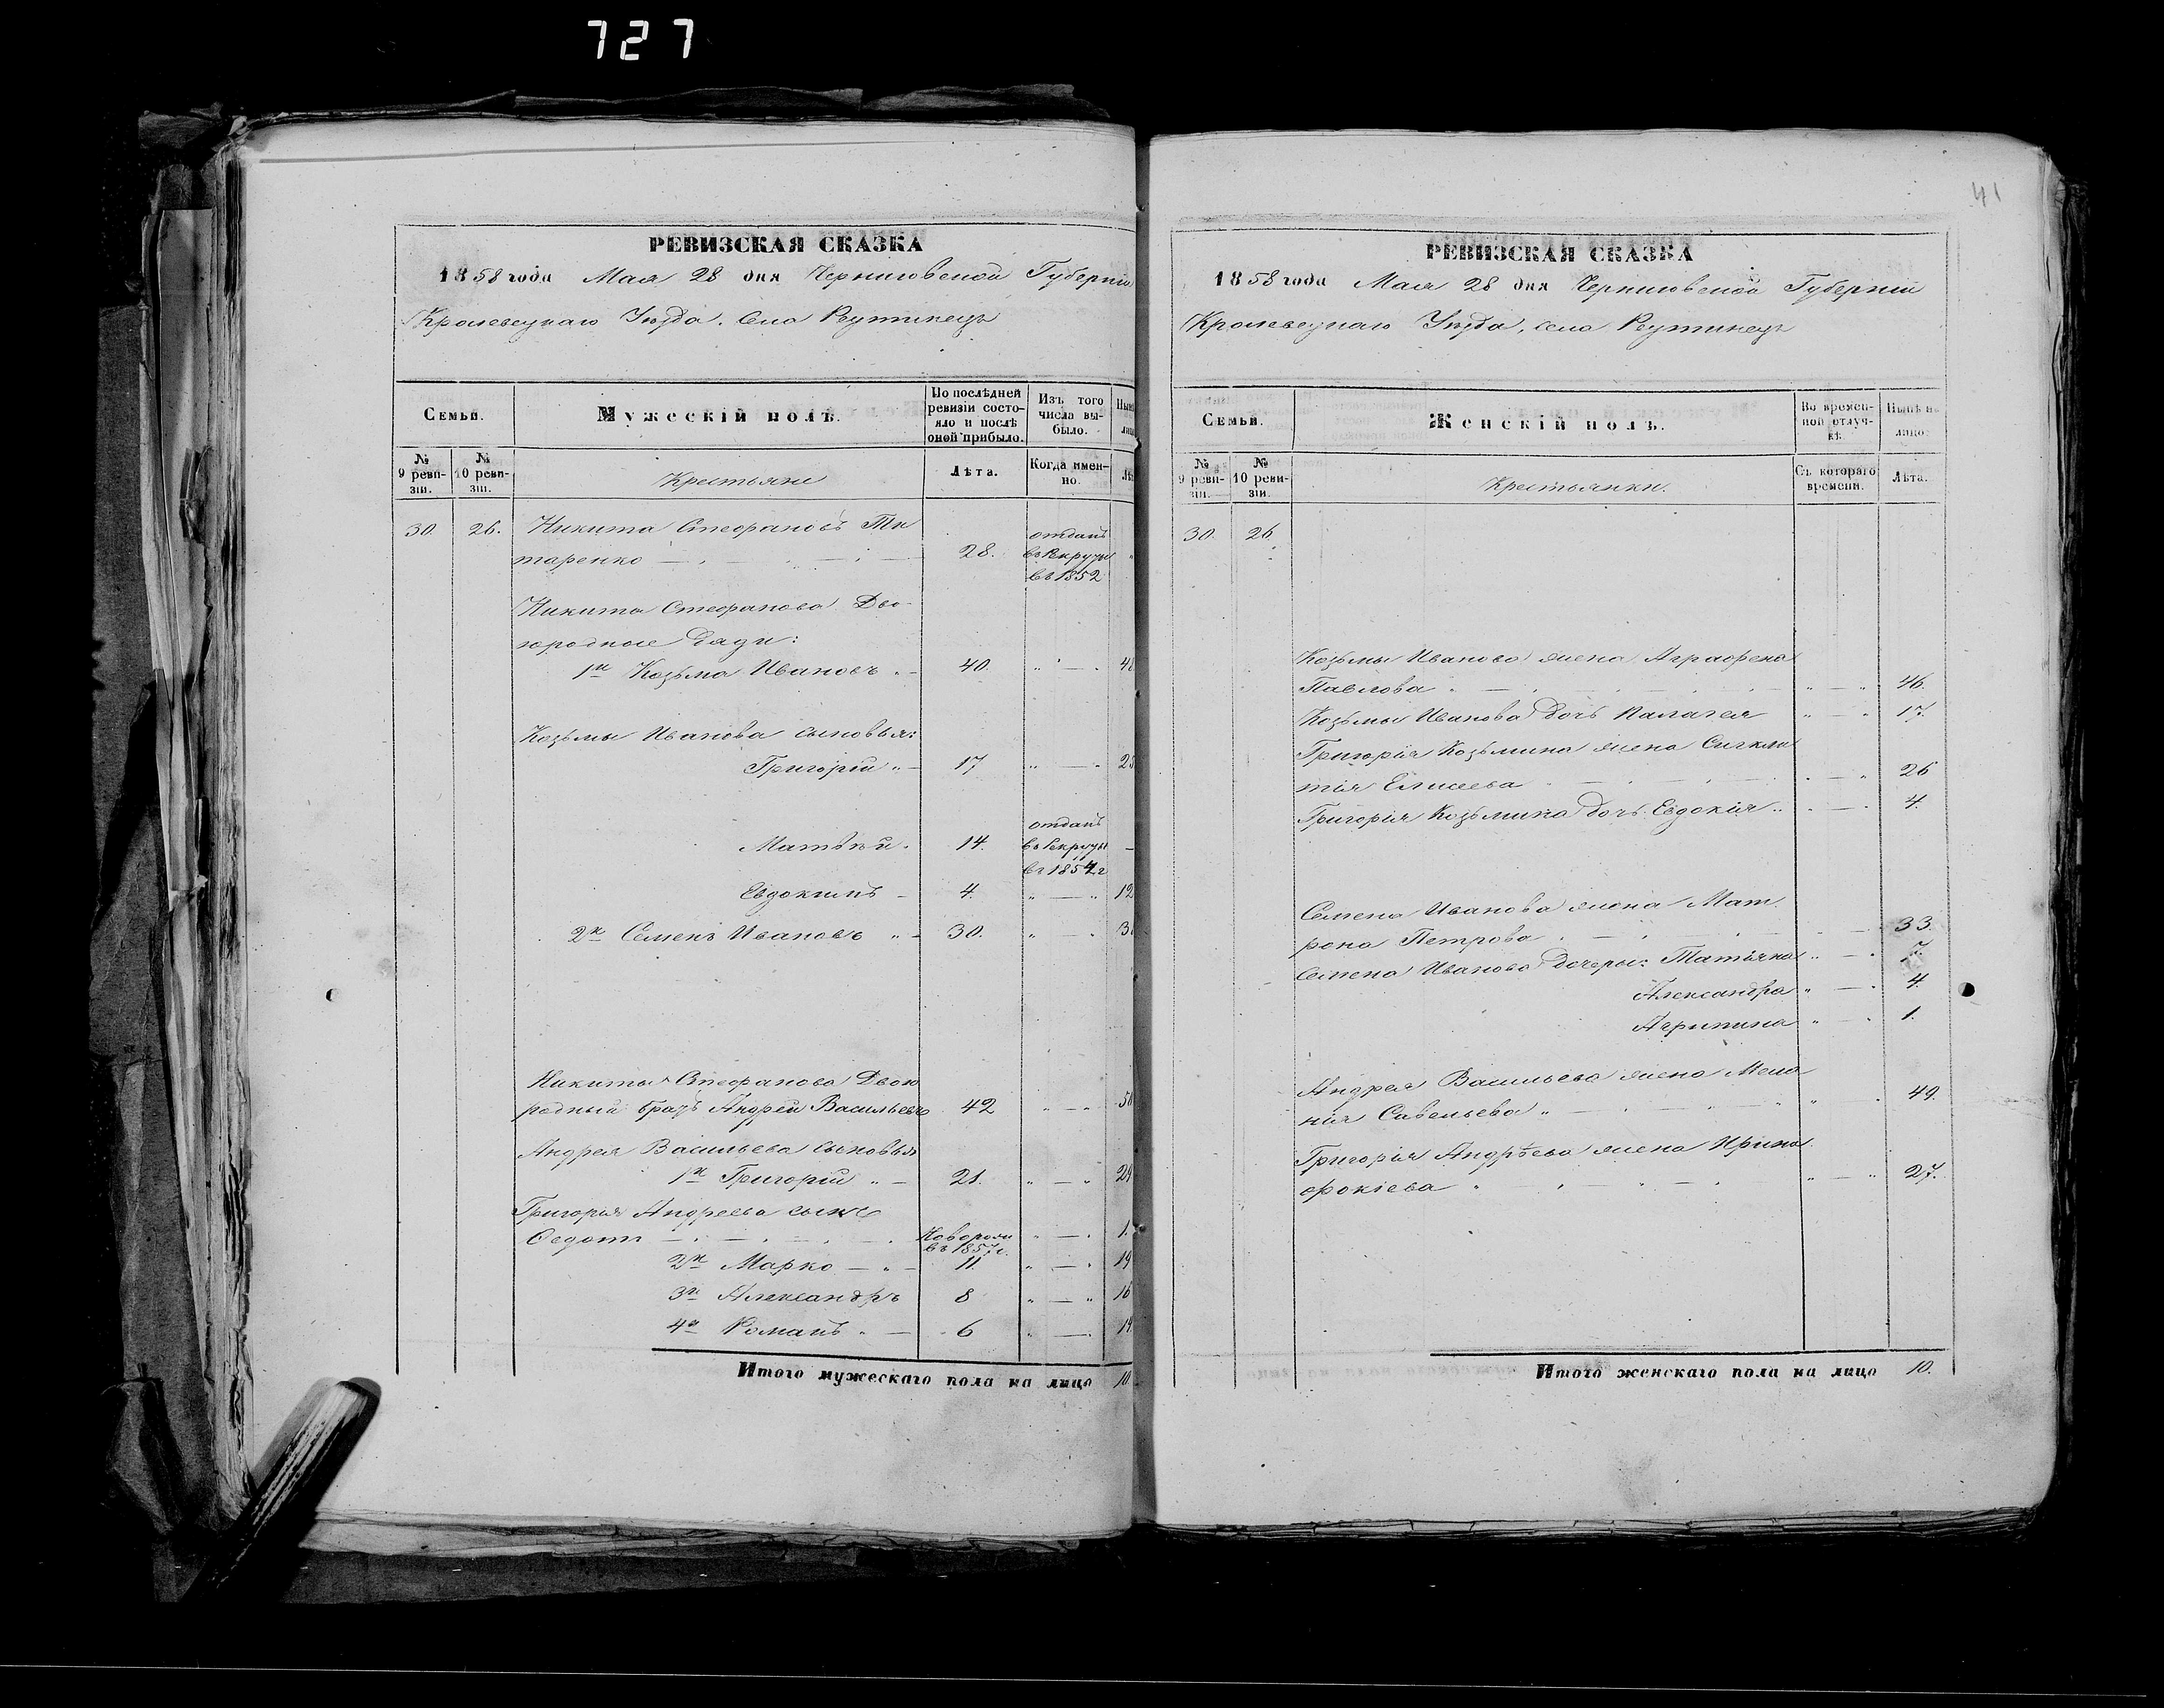 727
41
РЕВИЗСКАЯ СКАЗКА
1858 года Мая 28 дня Черниговской Губерніи
Кролевецкаго Уѣзда. Села Реутинецъ
Семьи.
Мужескій полъ.
По послѣдней ревизіи состояло и послѣ оной прибыло.
Изъ того числа выбыло.
№ 9 ревизіи.
№ 10 ревизіи.
Крестьяне
Лѣта.
Когда именно.
30. 26. Никита Стефановъ Ти
таренко 28. отданъ въ Рекруты въ 1852
Никиты Стефанова Дво-
юродные дяди:
1й Козьма Ивановъ 40.
Козьмы Иванова сыновья:
Григорій 17
Матвѣй 14. отданъ въ Рекруты въ 1854 г
Евдокимъ 4. 12
2й Семенъ Ивановъ 30.
Никиты Стефанова Двою
родный братъ Андрей Васильевъ 42
Андрея Васильева сыновья
1й Григорій 21. 29
Григорія Андреева сынъ
Федотъ Новорож въ 1857 г. 1.
2й Марко 11. 19
3й Александръ 8 16
4й Романъ 6 14
Итого мужескаго пола на лицо 10.
РЕВИЗСКАЯ СКАЗКА
1858 года Мая 28 дня Черниговской Губерніи
Кролевецкаго Уѣзда, села Реутинецъ
Семьи.
Женскій полъ.
Во временной отлучкѣ.
Нынѣ на лицо.
№ 9 ревизіи.
№ 10 ревизіи.
Крестьянки.
Съ котораго времени.
Лѣта.
30. 26.
Козьмы Иванова жена Аграфена
Павлова 46.
Козьмы Иванова дочь Палагея 17.
Григорія Козьмина жена Сигкли
тія Елисеева 26
Григорія Козьмина дочь Евдокія 4.
Семена Иванова жена Мат
рона Петрова 33.
Семена Иванова дочери: Татьяна 7.
Александра 4.
Агрипина 1.
Андрея Васильева жена Мела
нія Савельева 49.
Григорія Андрѣева жена Ирина
Фокіева 27.
Итого женскаго пола на лицо 10.